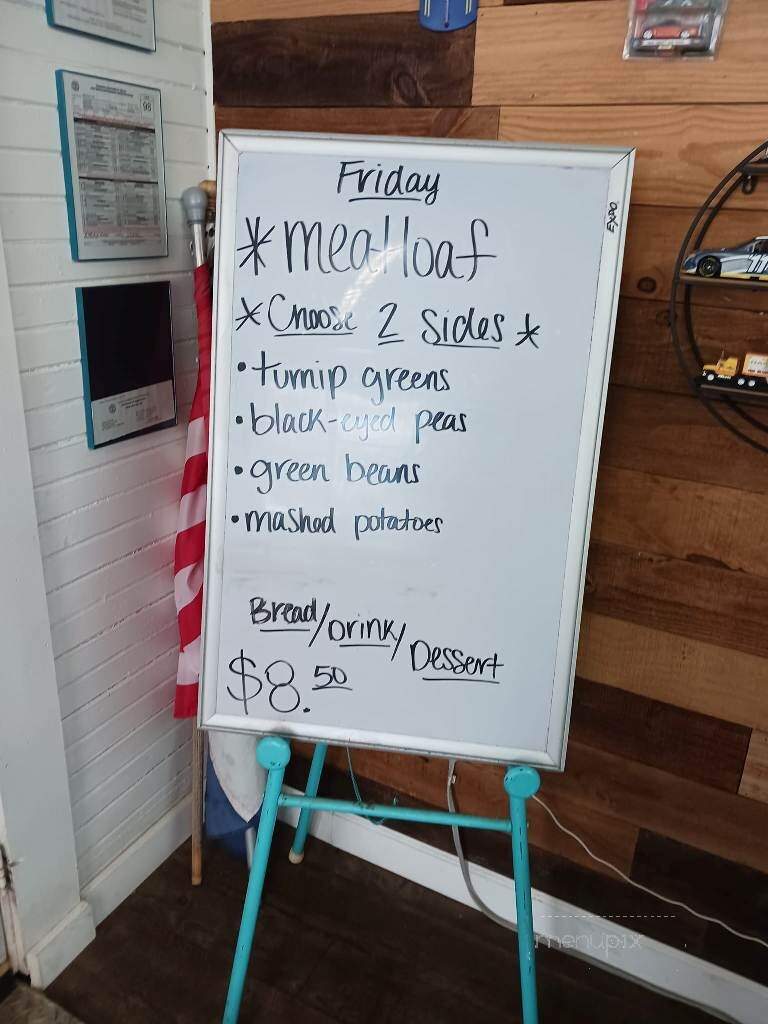 Friday
*meatloaf
*Choose 2 Sides*
• turnip greens
• black-eyed peas
• green beans
• mashed potatoes
Bread/Drink/Dessert
$8.50
EXPO
98
11
menupix